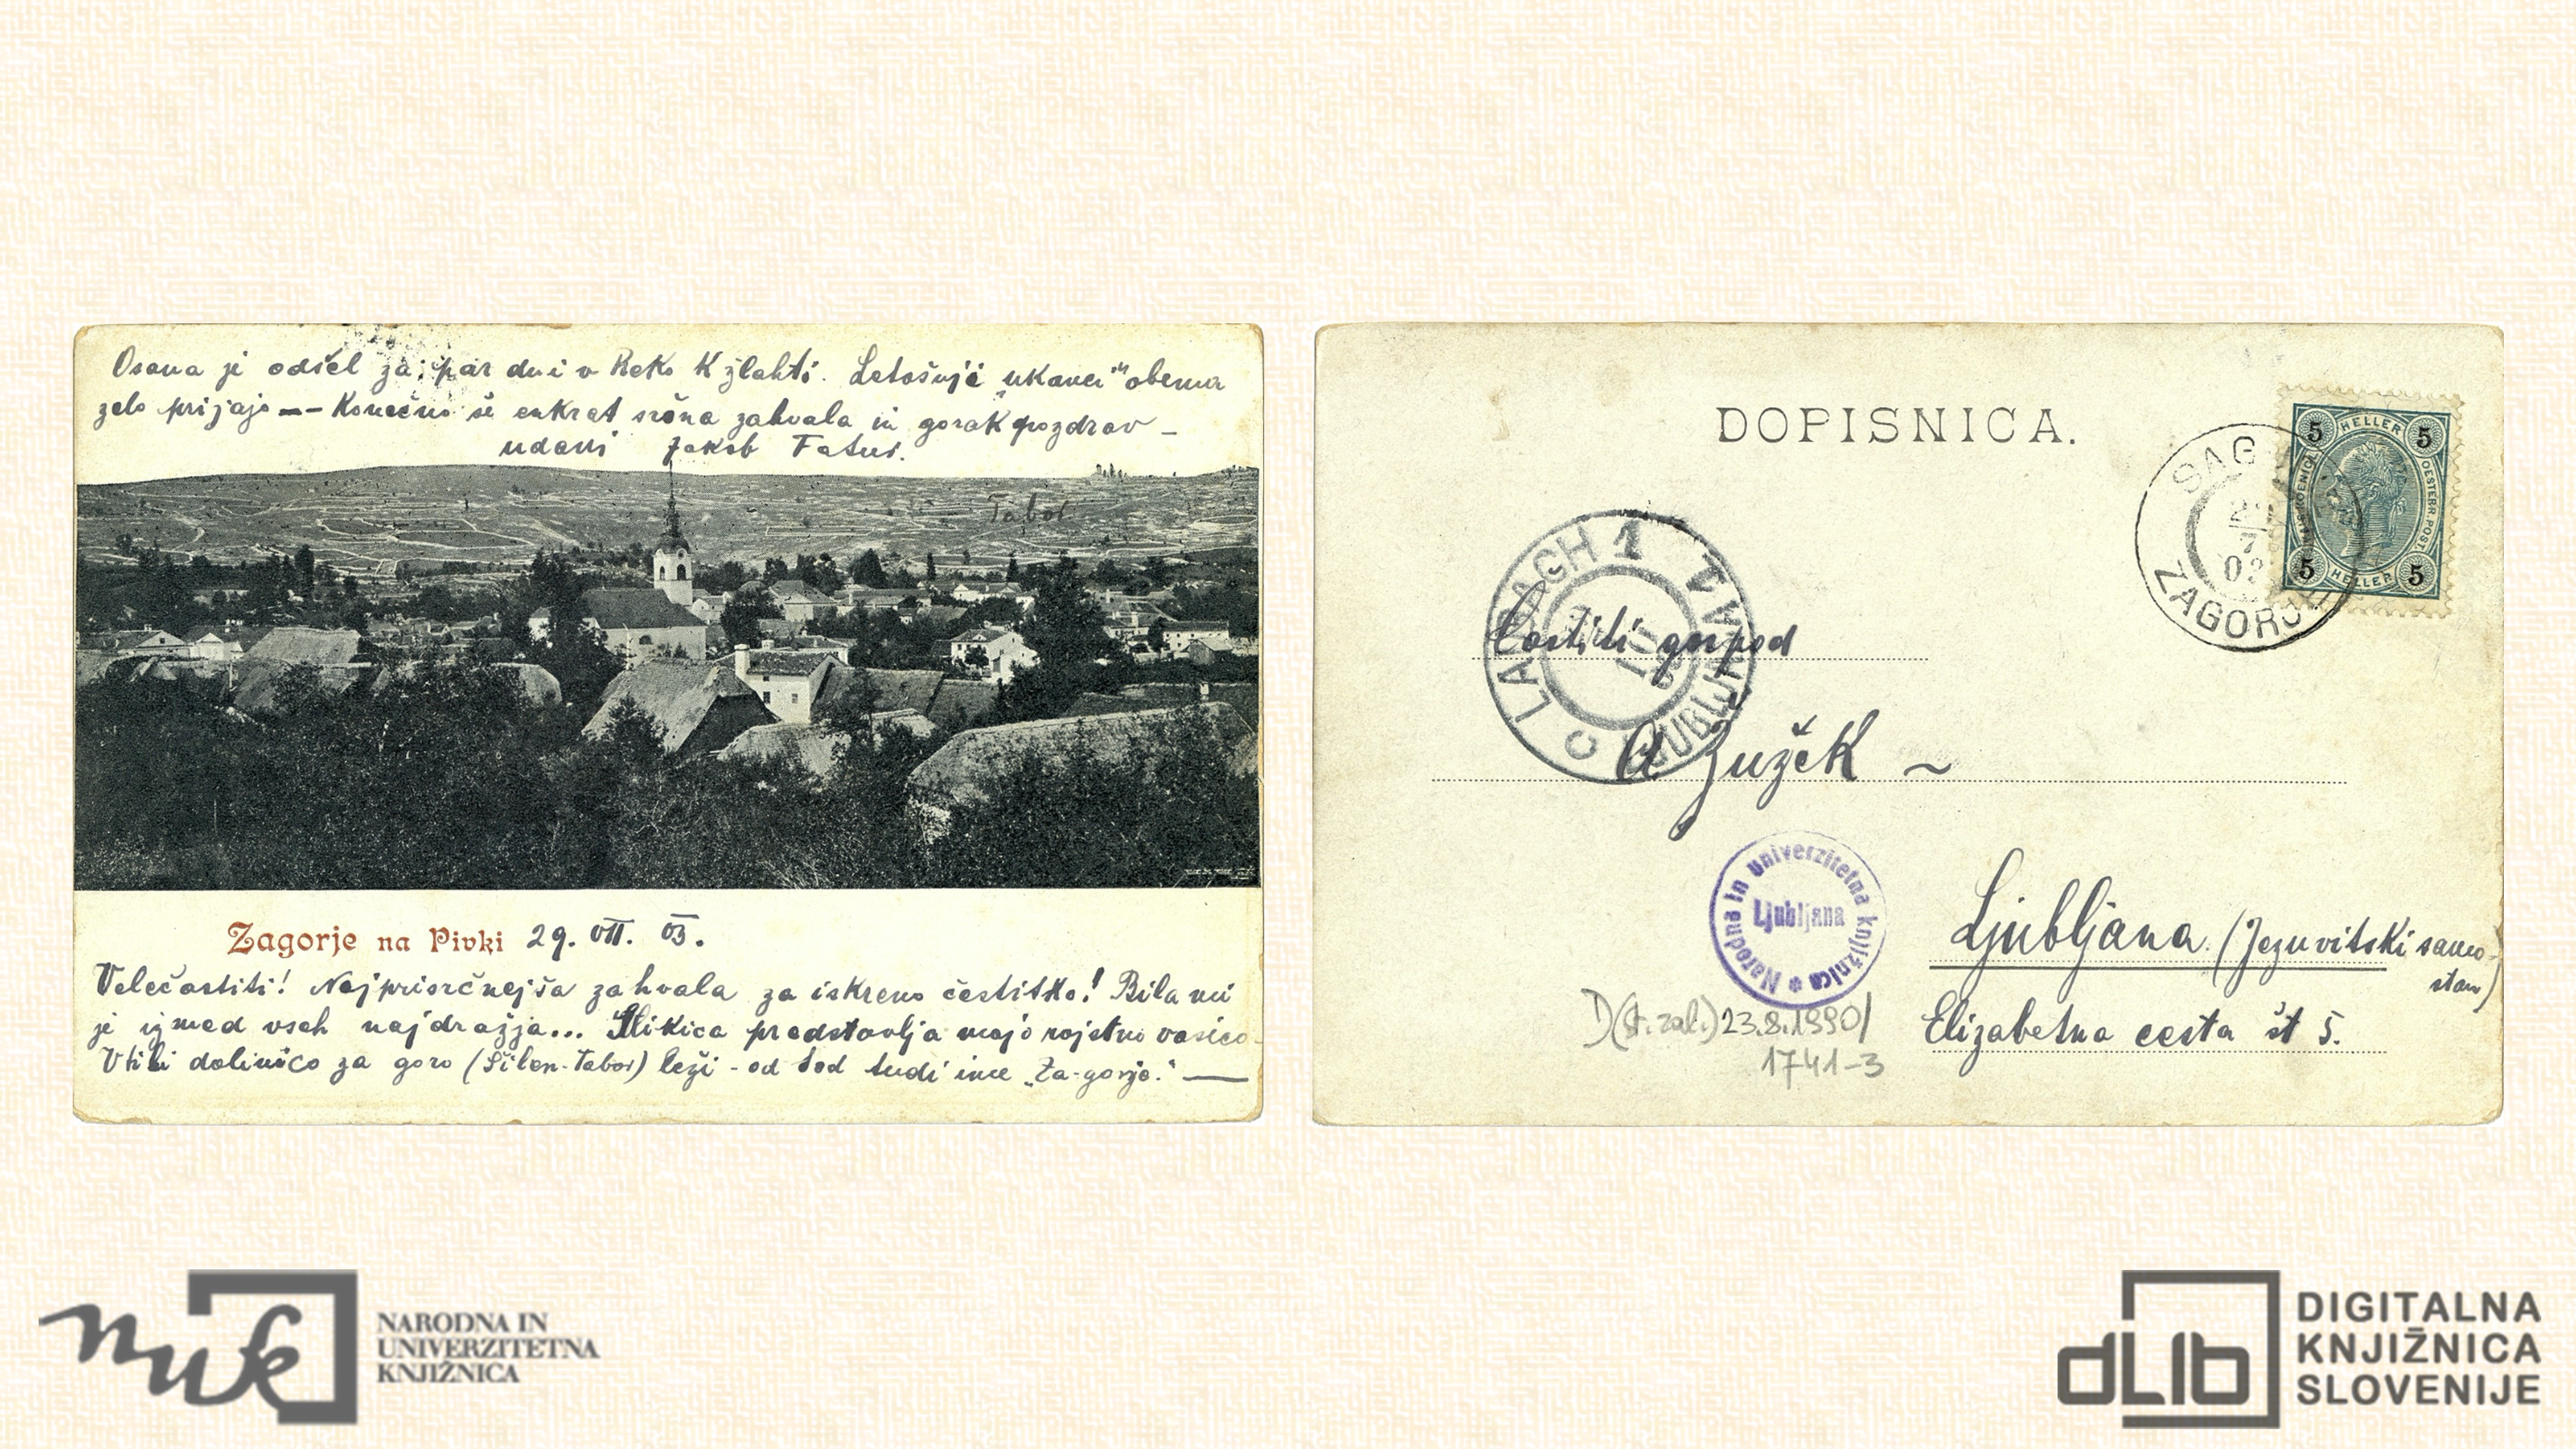 Osana je odšel za par dni v Reko k žlahti. Letošnji „ukanci" obema
zelo prijajo — Konečno še enkrat srčna zahvala in gorak pozdrav –
udani Jakob Fatur.
Tabor
Zagorje na Pivki 29. VII. 03.
Velečastiti! Najprisrčnejša zahvala za iskreno čestitko! Bila mi
je izmed vseh najdražja... Slikica predstavlja mojo rojstno vasico.
V tihi dolinico za goro (Šilen-Tabor) leži - od tod tudi ime „Za-gorje." —
DOPISNICA.
5 HELLER 5
OESTERR. POST
5 HELLER 5
SAG
7
03
ZAGORJE
LAIBACH 1
LJUBLJANA
C
Častiti gospod
A Žužek ~
Narodna in univerzitetna knjižnica
Ljubljana
Ljubljana (Jezuvitski samo-
stan)
Elizabetna cesta št 5.
D(st. zal.) 23.8.1990/
1741-3
nuk
NARODNA IN
UNIVERZITETNA
KNJIŽNICA
dLib
DIGITALNA
KNJIŽNICA
SLOVENIJE